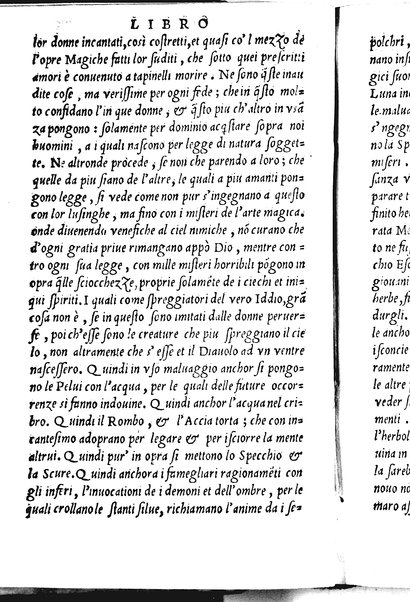 LIBRO
lor donne incantati, così costretti, et quasi co'l mezzo de
l'opre Magiche fatti lor suditi, che sotto quei prescritti
amori è conuenuto a tapinelli morire. Ne sono q̃ste inau
dite cose, ma verissime per ogni fede; che in q̃sto mol-
to confidano l'in que donne, & q̃sto piu ch'altro in vsã
za pongono: solamente per dominio acq̃stare sopra noi
huomini, a i quali nascono per legge di natura sogget-
te. Ne altronde procede, se non che parendo a loro; che
quelle da piu siano de l'altre, le quali a piu amanti pon-
gono legge, si vede come non pur s'ingegnano a questo
con lor lusinghe, ma fino con i misteri de l'arte magica.
onde diuenendo venefiche al ciel nimiche, nõ curano che
d'ogni gratia priue rimangano appò Dio, mentre con-
tro ogni sua legge, con mille misteri horribili põgono in
opra q̃lle sciocchezze, proprie solamẽte de i ciechi et ini-
qui spiriti. I quali come spreggiatori del vero Iddio, grã
cosa non è, se in questo sono imitati dalle donne peruer-
se, poi ch'esse sono le creature che piu spreggiano il cie
lo, non altramente che s'esse et il Diauolo ad vn ventre
nascessero. Quindi in vso maluaggio anchor si pongo-
no le Pelui con l'acqua, per le quali delle future occor-
renze si fanno indouine. Quindi anchor l'acqua nel cri-
bro. Quindi il Rombo, & l'Accia torta; che con in-
cantesimo adoprano per legare & per isciorre la mente
altrui. Quindi pur' in opra si mettono lo Specchio &
la Scure. Quindi anchora i famegliari ragionamẽti con
gli inferi, l'inuocationi de i demoni et dell'ombre, per le
quali crollano le stanti silue, richiamano l'anime da i se-
polchri,
nano inf
gici suon
Luna in
le malua
s'ingegn
no la Sp
miseri .
sanza v
parare t
finito he
rata M
to ne fu
chio Esc
giouani
herbe, f
durgli.
le ancho
isconcie
ramente
le altre
veder s
menti .
l'herbol
uina in
la sareb
nouo n
maro as